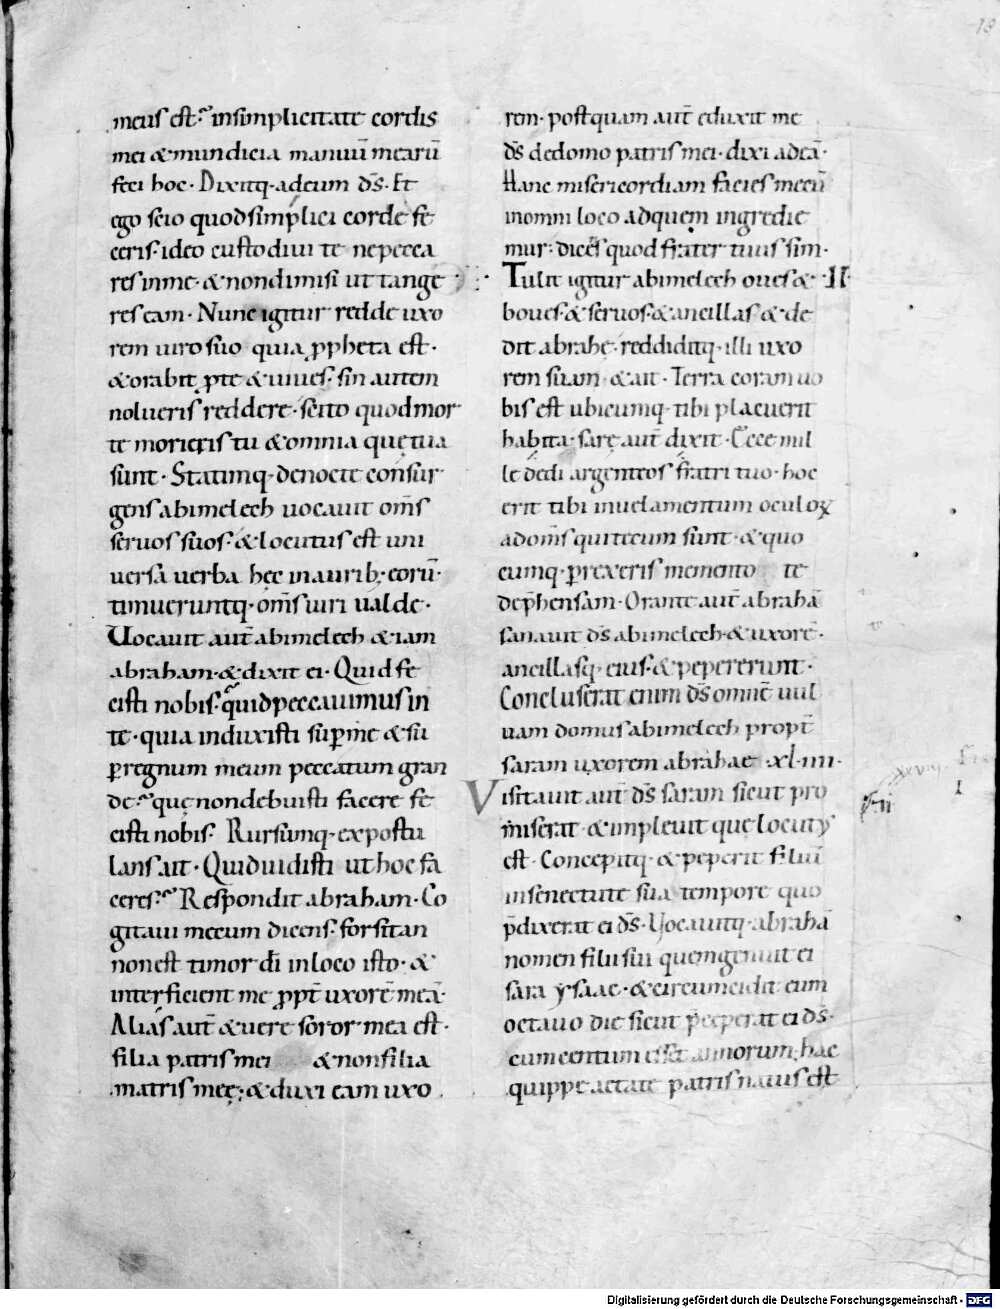 18
meus est? insimplicitate cordis
mei &mundicia manuū mearū
feci hoc. Dixitq·adeum dˉs. Et
ego scio quodsimplici corde fe
ceris. ideo custodiui te nepecca
res inme. &nondimisi ut tange
res eam. Nunc igitur redde uxo
rem uiro suo quia ꝓpheta est.
&orabit ꝓte &uiues. sin autem
nolueris reddere. scito quodmor
te morieris tu &omnia quętua
sunt. Statimq· denocte consur
gens abimelech uocauit om̄s
seruos suos. &locutus est uni
uersa uerba hęc inaurib; eorū.
timueruntq· om̄s uiri ualde.
Uocauit aut̄ abimelech &iam
abraham. &dixit ei. Quid fe
cisti nobis? quidpeccauimus in
te. quia induxisti suꝑme &su
ꝑregnum meum peccatum gran
de? quę nondebuisti facere fe
cisti nobis. Rursumq· expostu
lans ait. Quiduidisti ut hoc fa
ceres? Respondit abraham. Co
gitaui mecum dicens. forsitan
nonest timor dī inloco isto. &
interficient me ꝓpt̄ uxorē meā.
Alias aut̄ &uere soror mea est.
filia patris mei &nonfilia
matris meę; &duxi eam uxo
rem. postquam aut̄ eduxit me
dˉs dedomo patris mei. dixi adeā.
Hanc misericordiam facies mecū
inomni loco adquem ingredie
mur. dices quod frater tuus sim.
Tulit igitur abimelech oues &
boues. &seruos. &ancillas &de
dit abrahę. reddiditq· illi uxo
rem suam. &ait. Terra coram uo
bis est ubicumq· tibi placuerit
habita. sarę aut̄ dixit. Ecce mil
le dedi argenteos fratri tuo. hoc
erit tibi inuelamentum oculoꝝ
adom̄s quitecum sunt. &quo
cumq· ꝑrexeris memento te
dep̄hensam. Orante aut̄ abrahā
sanauit dˉs abimelech. &uxorē.
ancillasq· eius. &pepererunt.
Concluserat enim dˉs omnē uul
uam domus abimelech propt̄
saram uxorem abrahae. xl·iiii·
Uisitauit aut̄ dˉs saram sicut pro
miserat. &impleuit quę locutꝰ
est. Concepitq· &peperit filiū
insenectute sua tempore quo
p̄dixerat ei dˉs. Uocauitq· abrahā
nomen filii sui quemgenuit ei
sara ysaac. &circumcidit eum
octauo die sicut p̄ceperat ei dˉs.
cumcentum esset annorum. hac
quippe aetate patris natus est
Digitalisierung gefördert durch die Deutsche Forschungsgemeinschaft - DFG